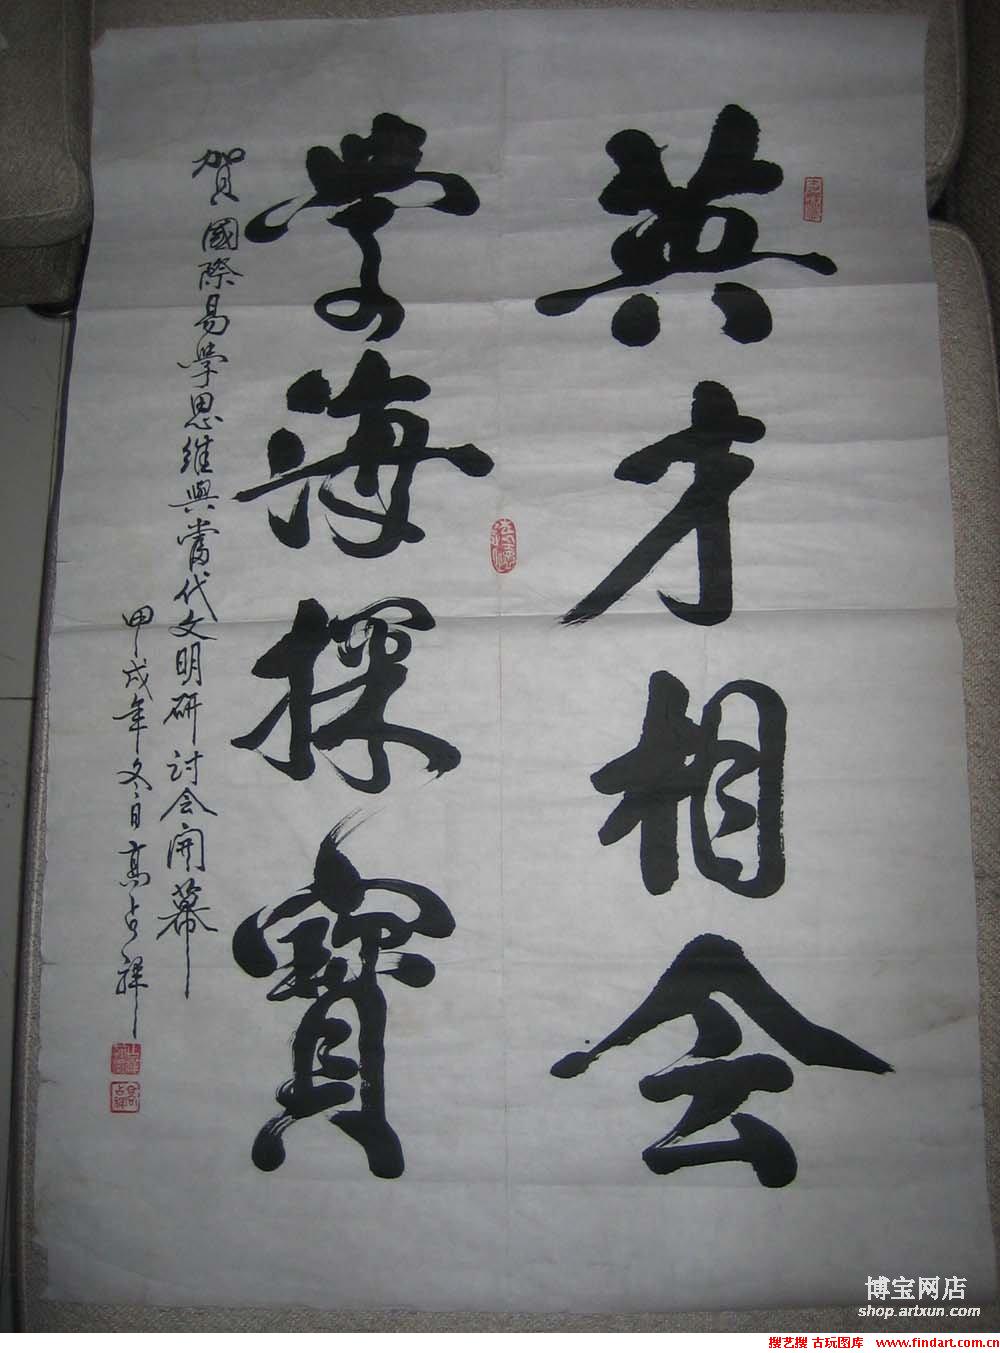 英才相会
学海探寶
賀國際易學思維與當代文明研讨会開幕
甲戌年冬日高占祥
博宝网店
shop.artxun.com
搜艺搜 古玩图库 www.findart.com.cn